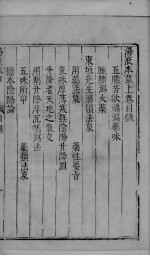 湯液本草上卷目錄
五臟苦欲補瀉藥味
臟腑瀉火藥
東垣先生藥類法象
用藥法象
藥性要旨
氣味厚薄寒熱陰陽升降圖
升降者天地之氣交
用藥升降浮沉補瀉法
五味所用
藥類法象
標本陰陽論